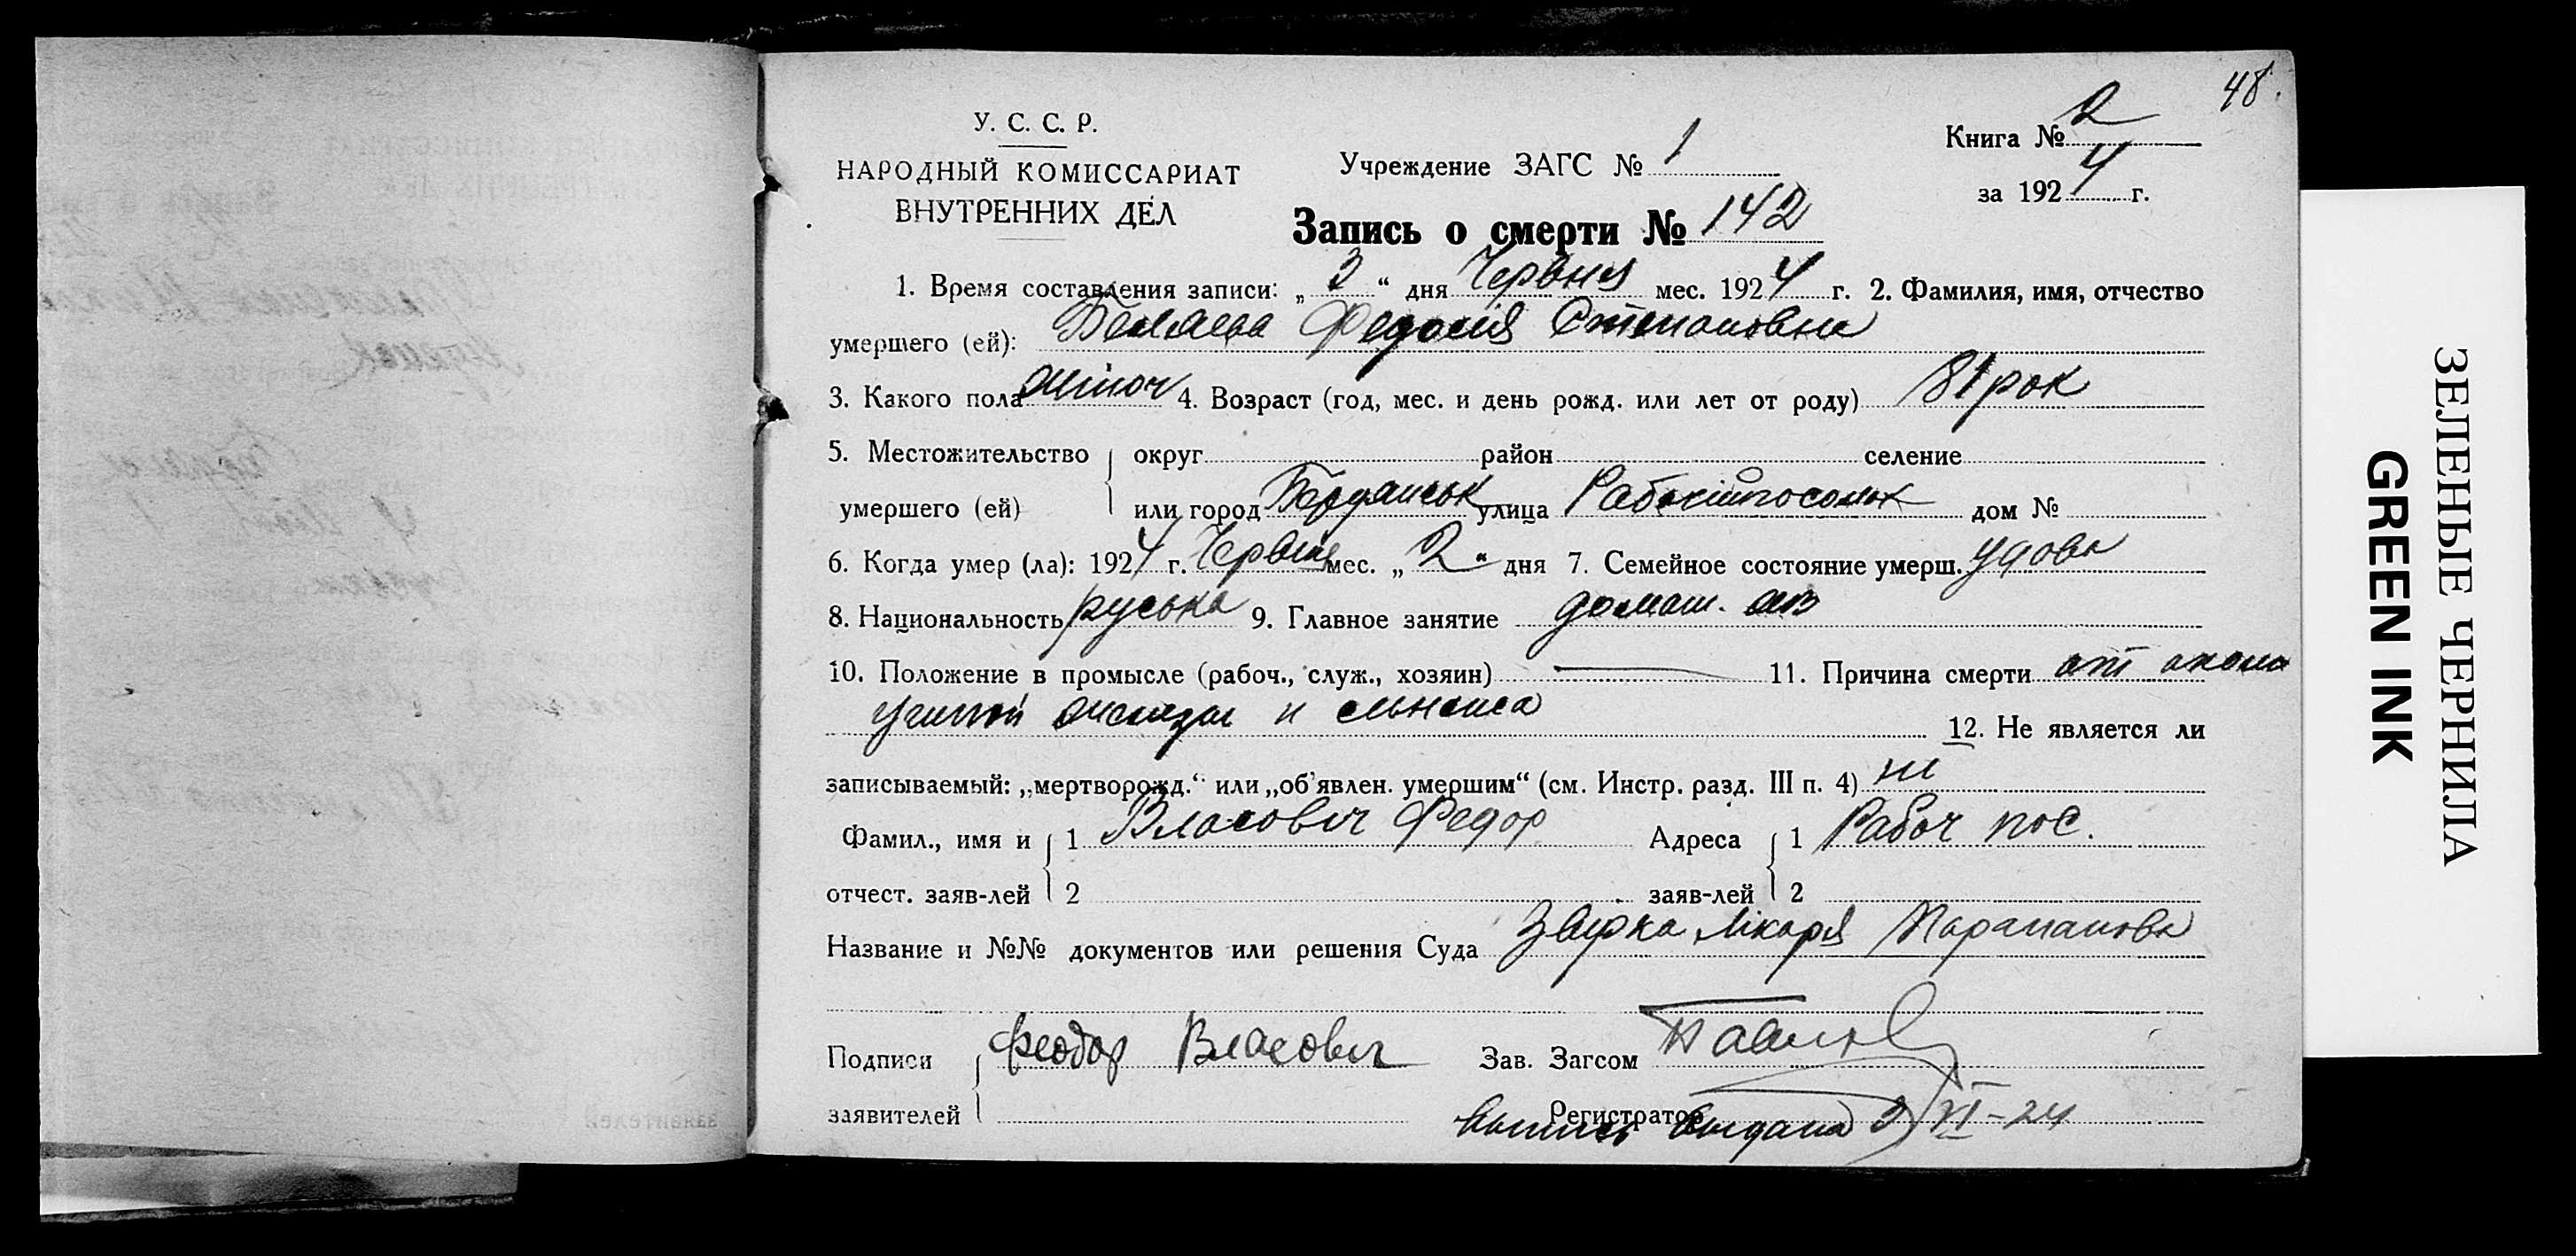 48.
У. С. С. Р.
НАРОДНЫЙ КОМИССАРИАТ
ВНУТРЕННИХ ДЕЛ
Учреждение ЗАГС № 1
Книга № 2
за 1924 г.
Запись о смерти № 142
1. Время составления записи: „3“ дня Червня мес. 1924 г. 2. Фамилия, имя, отчество
умершего (ей): Беляева Федосія Степановна
3. Какого пола жіноч 4. Возраст (год, мес. и день рожд. или лет от роду) 81 рок
5. Местожительство округ район селение
умершего (ей) или город Бердянськ улица дом №
6. Когда умер (ла): 1924 г. Червня мес. „2“ дня 7. Семейное состояние умерш. удова
8. Национальность руська 9. Главное занятие домаш.
10. Положение в промысле (рабоч., служ., хозяин) — 11. Причина смерти от
и
12. Не является ли
записываемый: „мертворожд.“ или „об'явлен. умершим“ (см. Инстр. разд. III п. 4) ні
Фамил., имя и 1 Власович Федор Адреса 1 Рабоч пос.
отчест. заяв-лей 2 заяв-лей 2
Название и №№ документов или решения Суда лікаря
Подписи Феодор Власович Зав. Загсом
заявителей Регистратор
выпись выдана XI-24
ЗЕЛЕНЫЕ ЧЕРНИЛА
GREEN INK